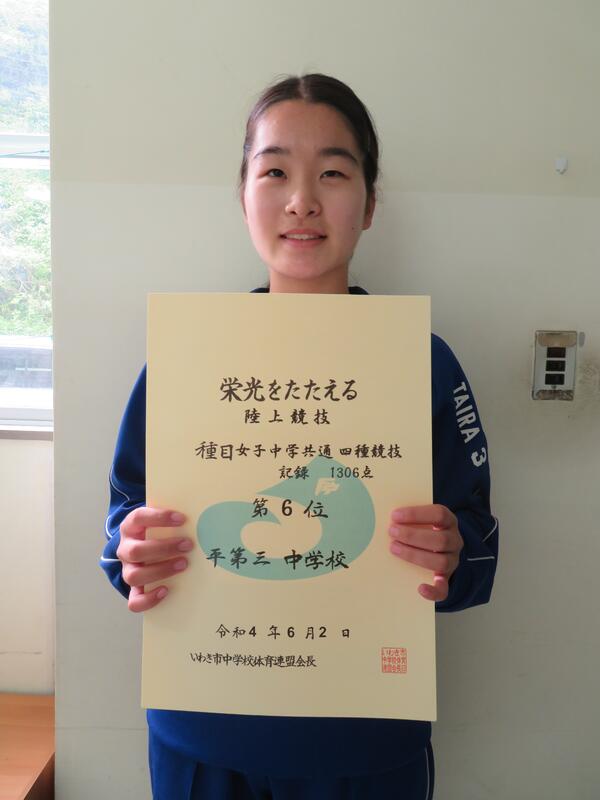 栄光をたたえる
陸上競技
種目女子中学共通 四種競技
記録 1306点
第 6 位
平第三 中学校
令和4 年 6 月 2 日
いわき市中学校体育連盟会長
TAIRA 3